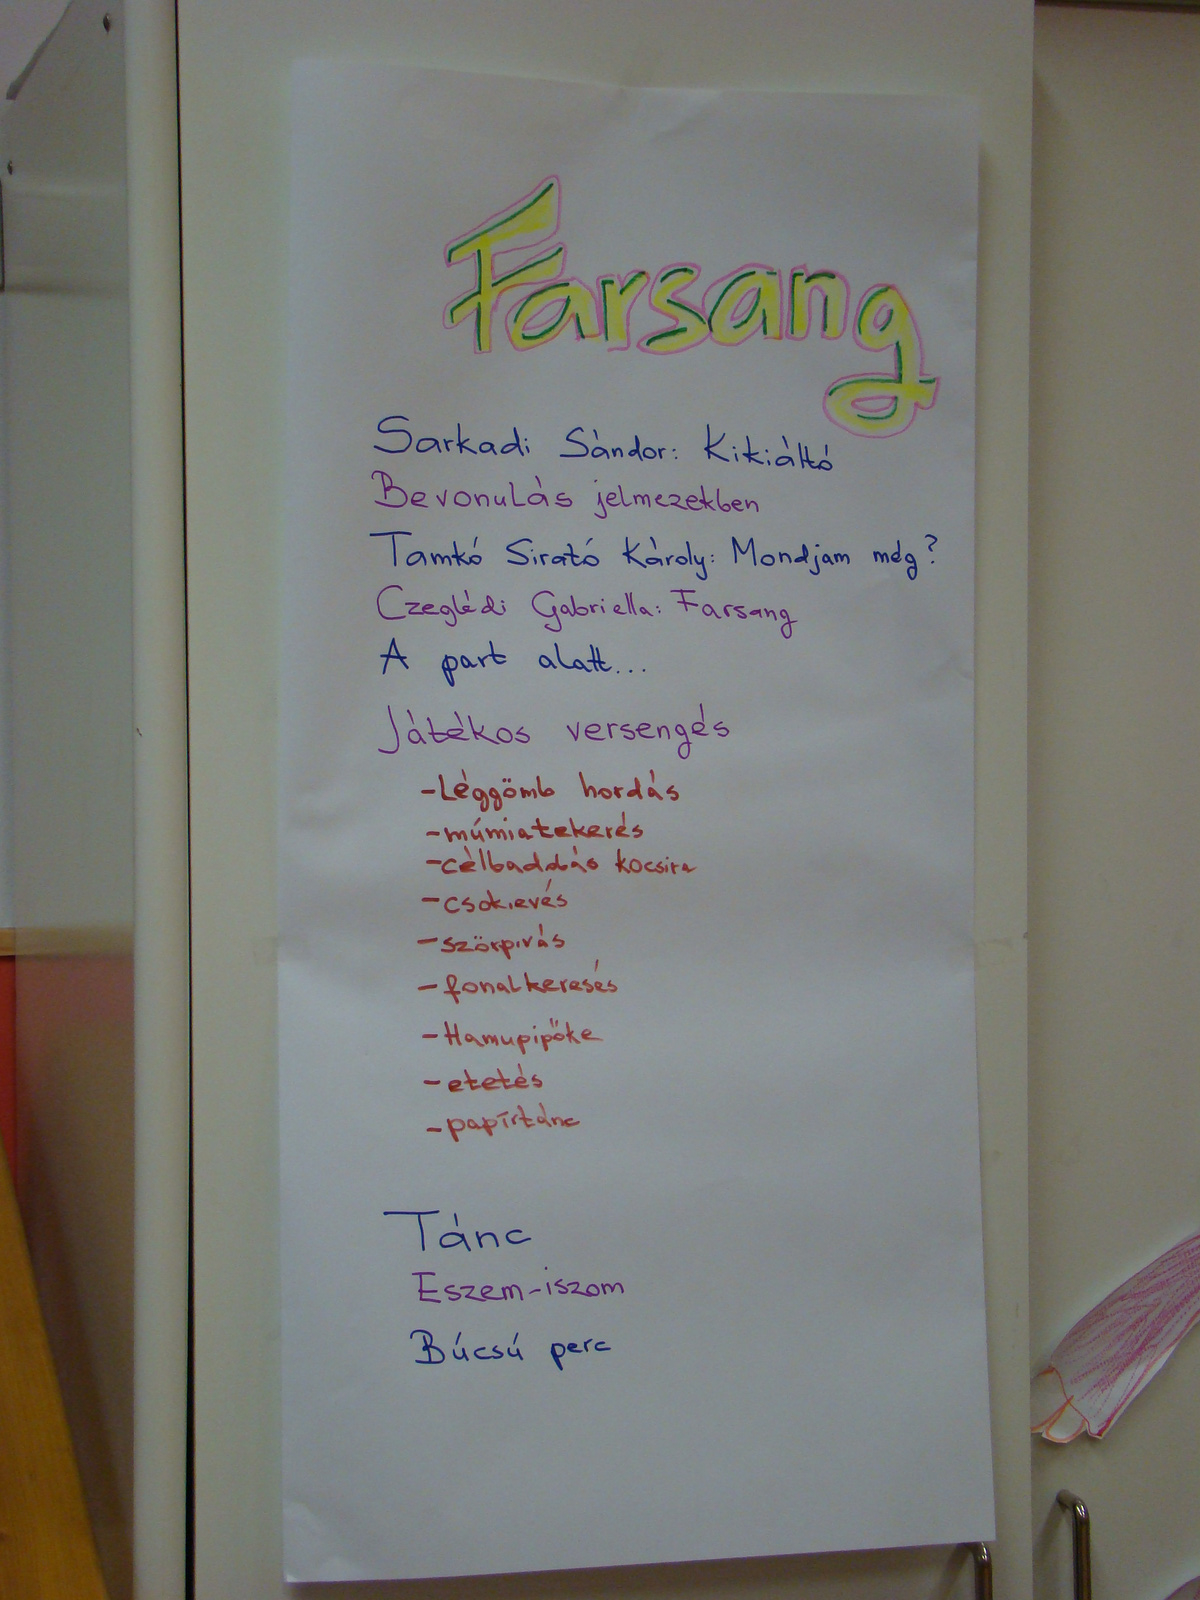 Farsang
Sarkadi Sándor: Kikiáltó
Bevonulás jelmezekben
Tamkó Sirató Károly: Mondjam még?
Czeglédi Gabriella: Farsang
A part alatt...
Játékos versengés
-Léggömb hordás
-múmiatekerés
-célbadobás kocsira
-csokievés
-szörpivás
-fonalkeresés
-Hamupipőke
-etetés
-papírtánc
Tánc
Eszem-iszom
Búcsú perc